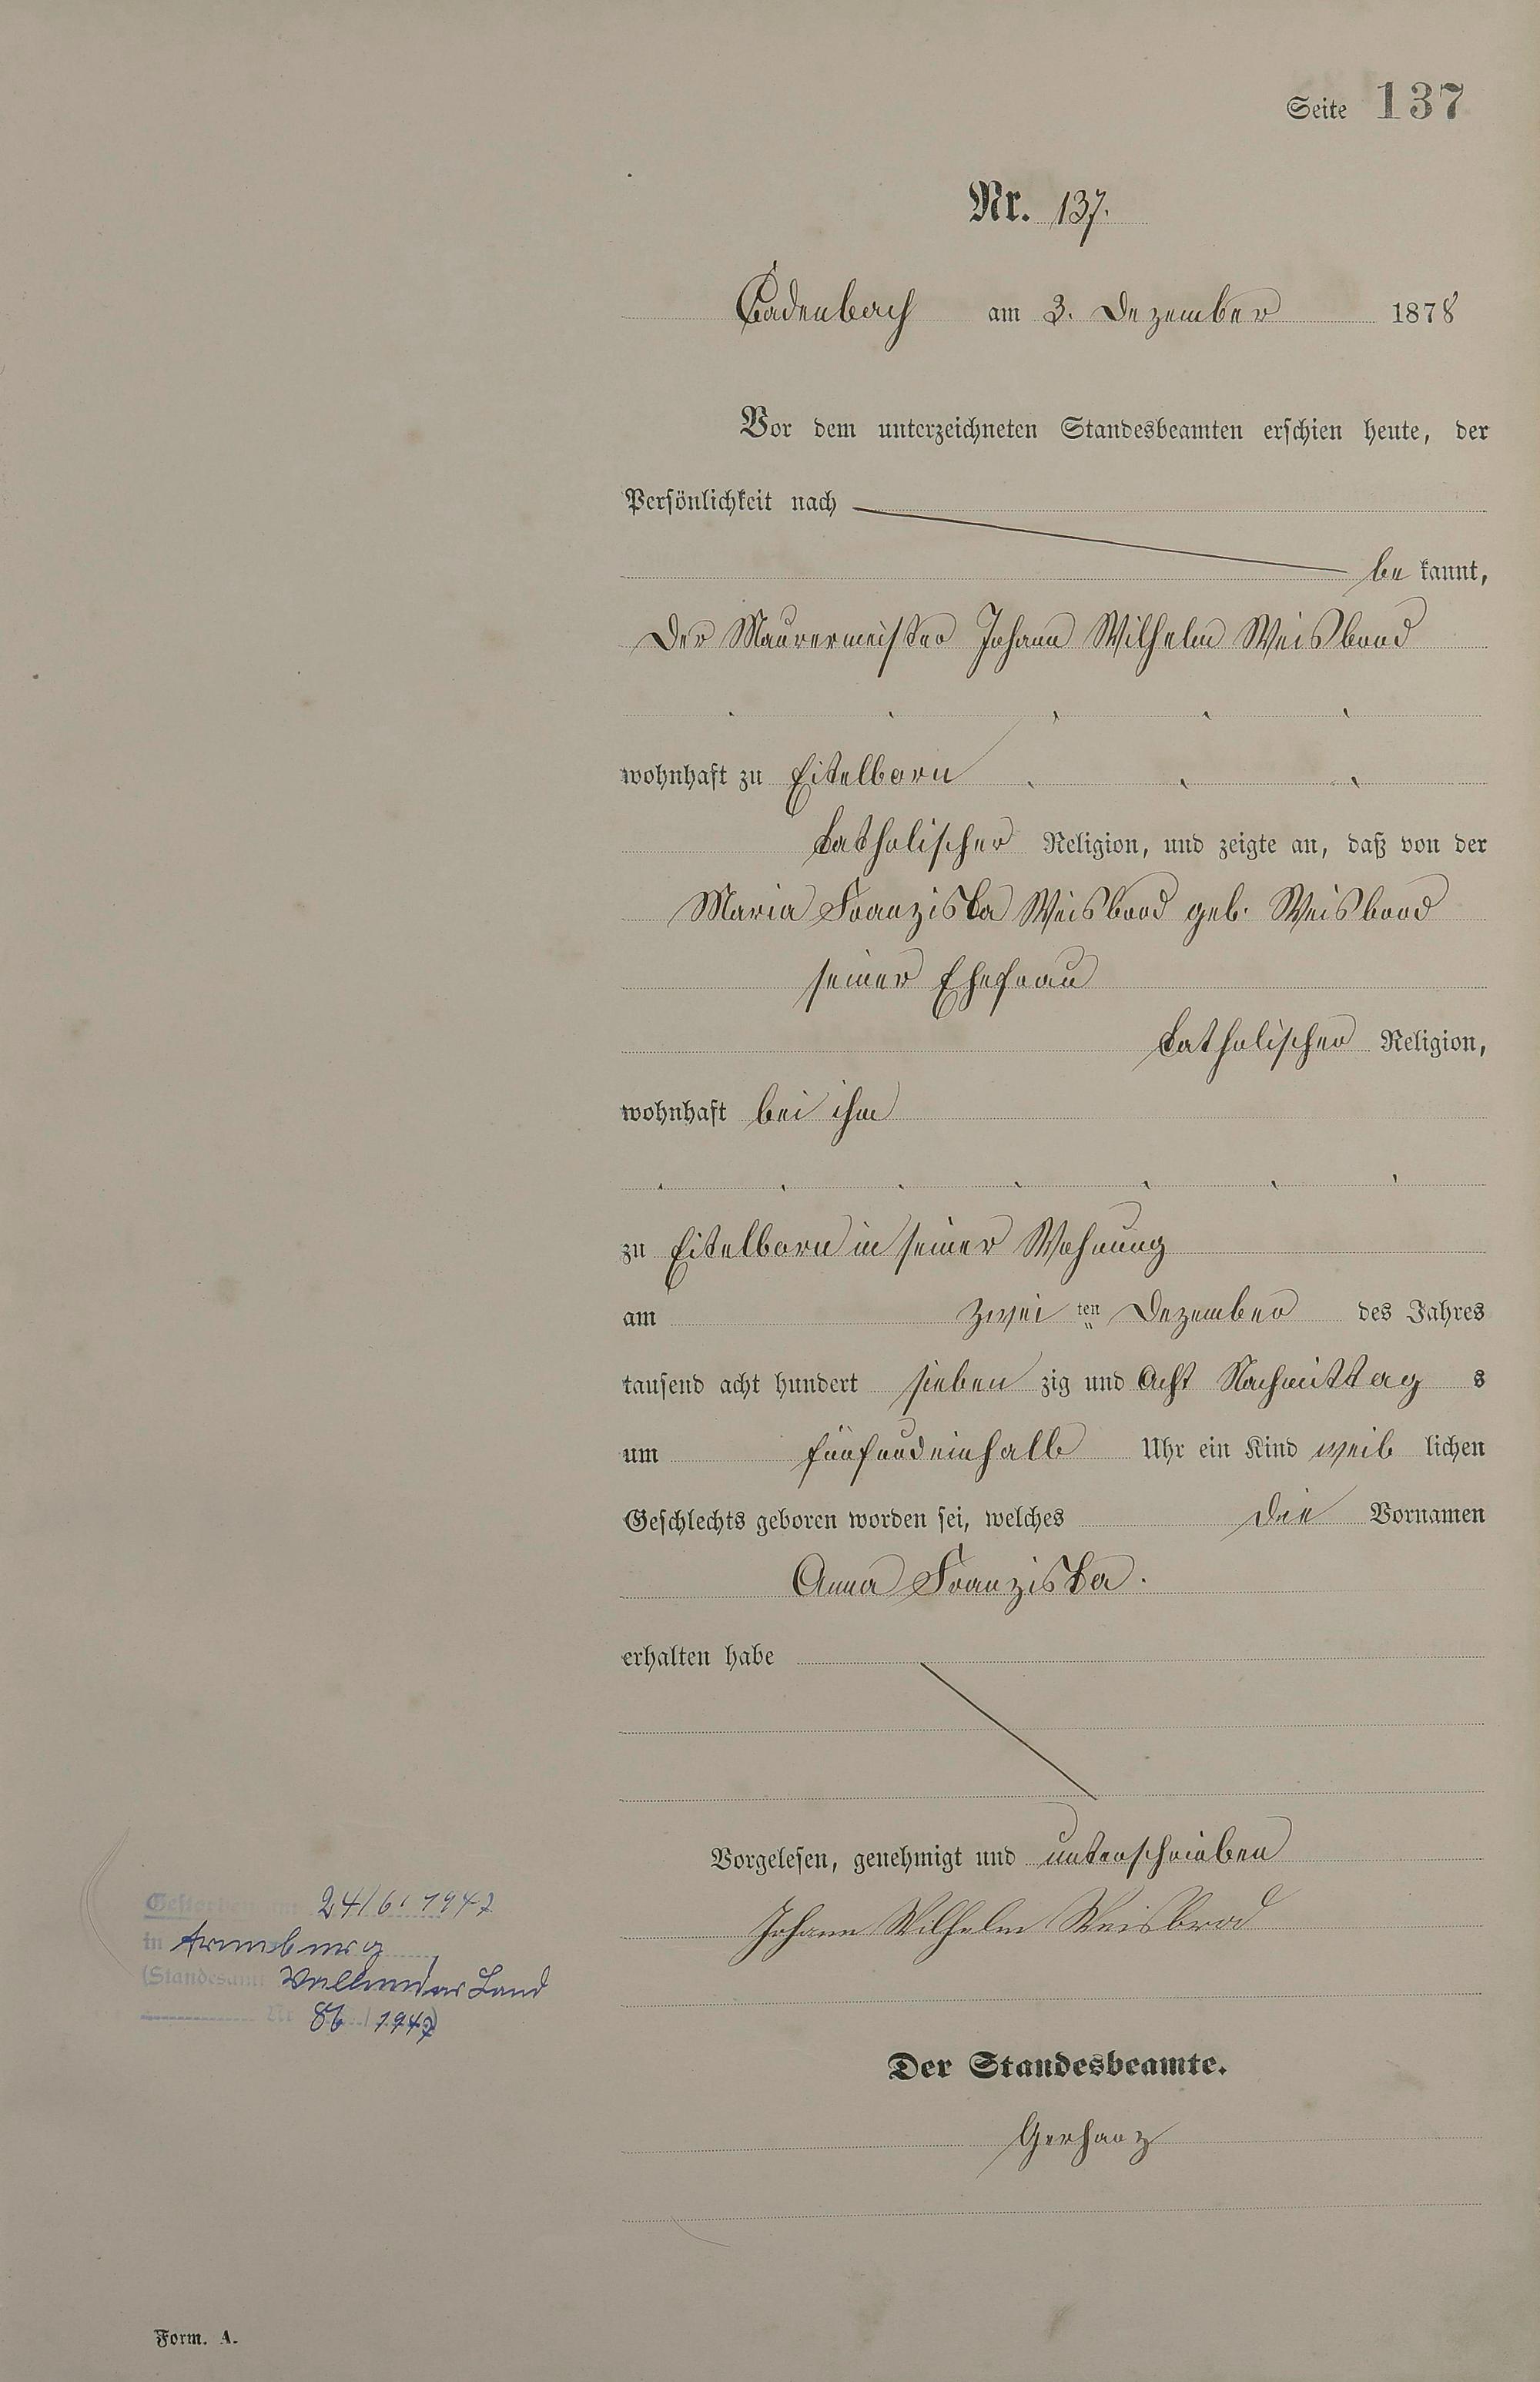 Seite 137
Nr. 137.
Cadenbach am 3. Dezember 1878
Vor dem unterzeichneten Standesbeamten erschien heute, der
Persönlichkeit nach
be kannt,
Der Maurermeister Johann Wilhelm Weisbrod
wohnhaft zu Eitelborn
katholischer Religion, und zeigte an, daß von der
Maria Franziska Weisbrod geb. Weisbrod
seiner Ehefrau
katholischer Religion,
wohnhaft bei ihm
zu Eitelborn in seiner Wohnung
am zwei ten Dezember des Jahres
tausend acht hundert sieben zig und Acht Nachmittag s
um fünfundeinhalb Uhr ein Kind weib lichen
Geschlechts geboren worden sei, welches die Vornamen
Anna Franziska.
erhalten habe
Vorgelesen, genehmigt und unterschrieben
Johann Wilhelm Weisbrod
Gestorben am 24/6. 1947
in
(Standesamt Vallendar Land
Nr 86 / 1947)
Der Standesbeamte.
Gerharz
Form. A.